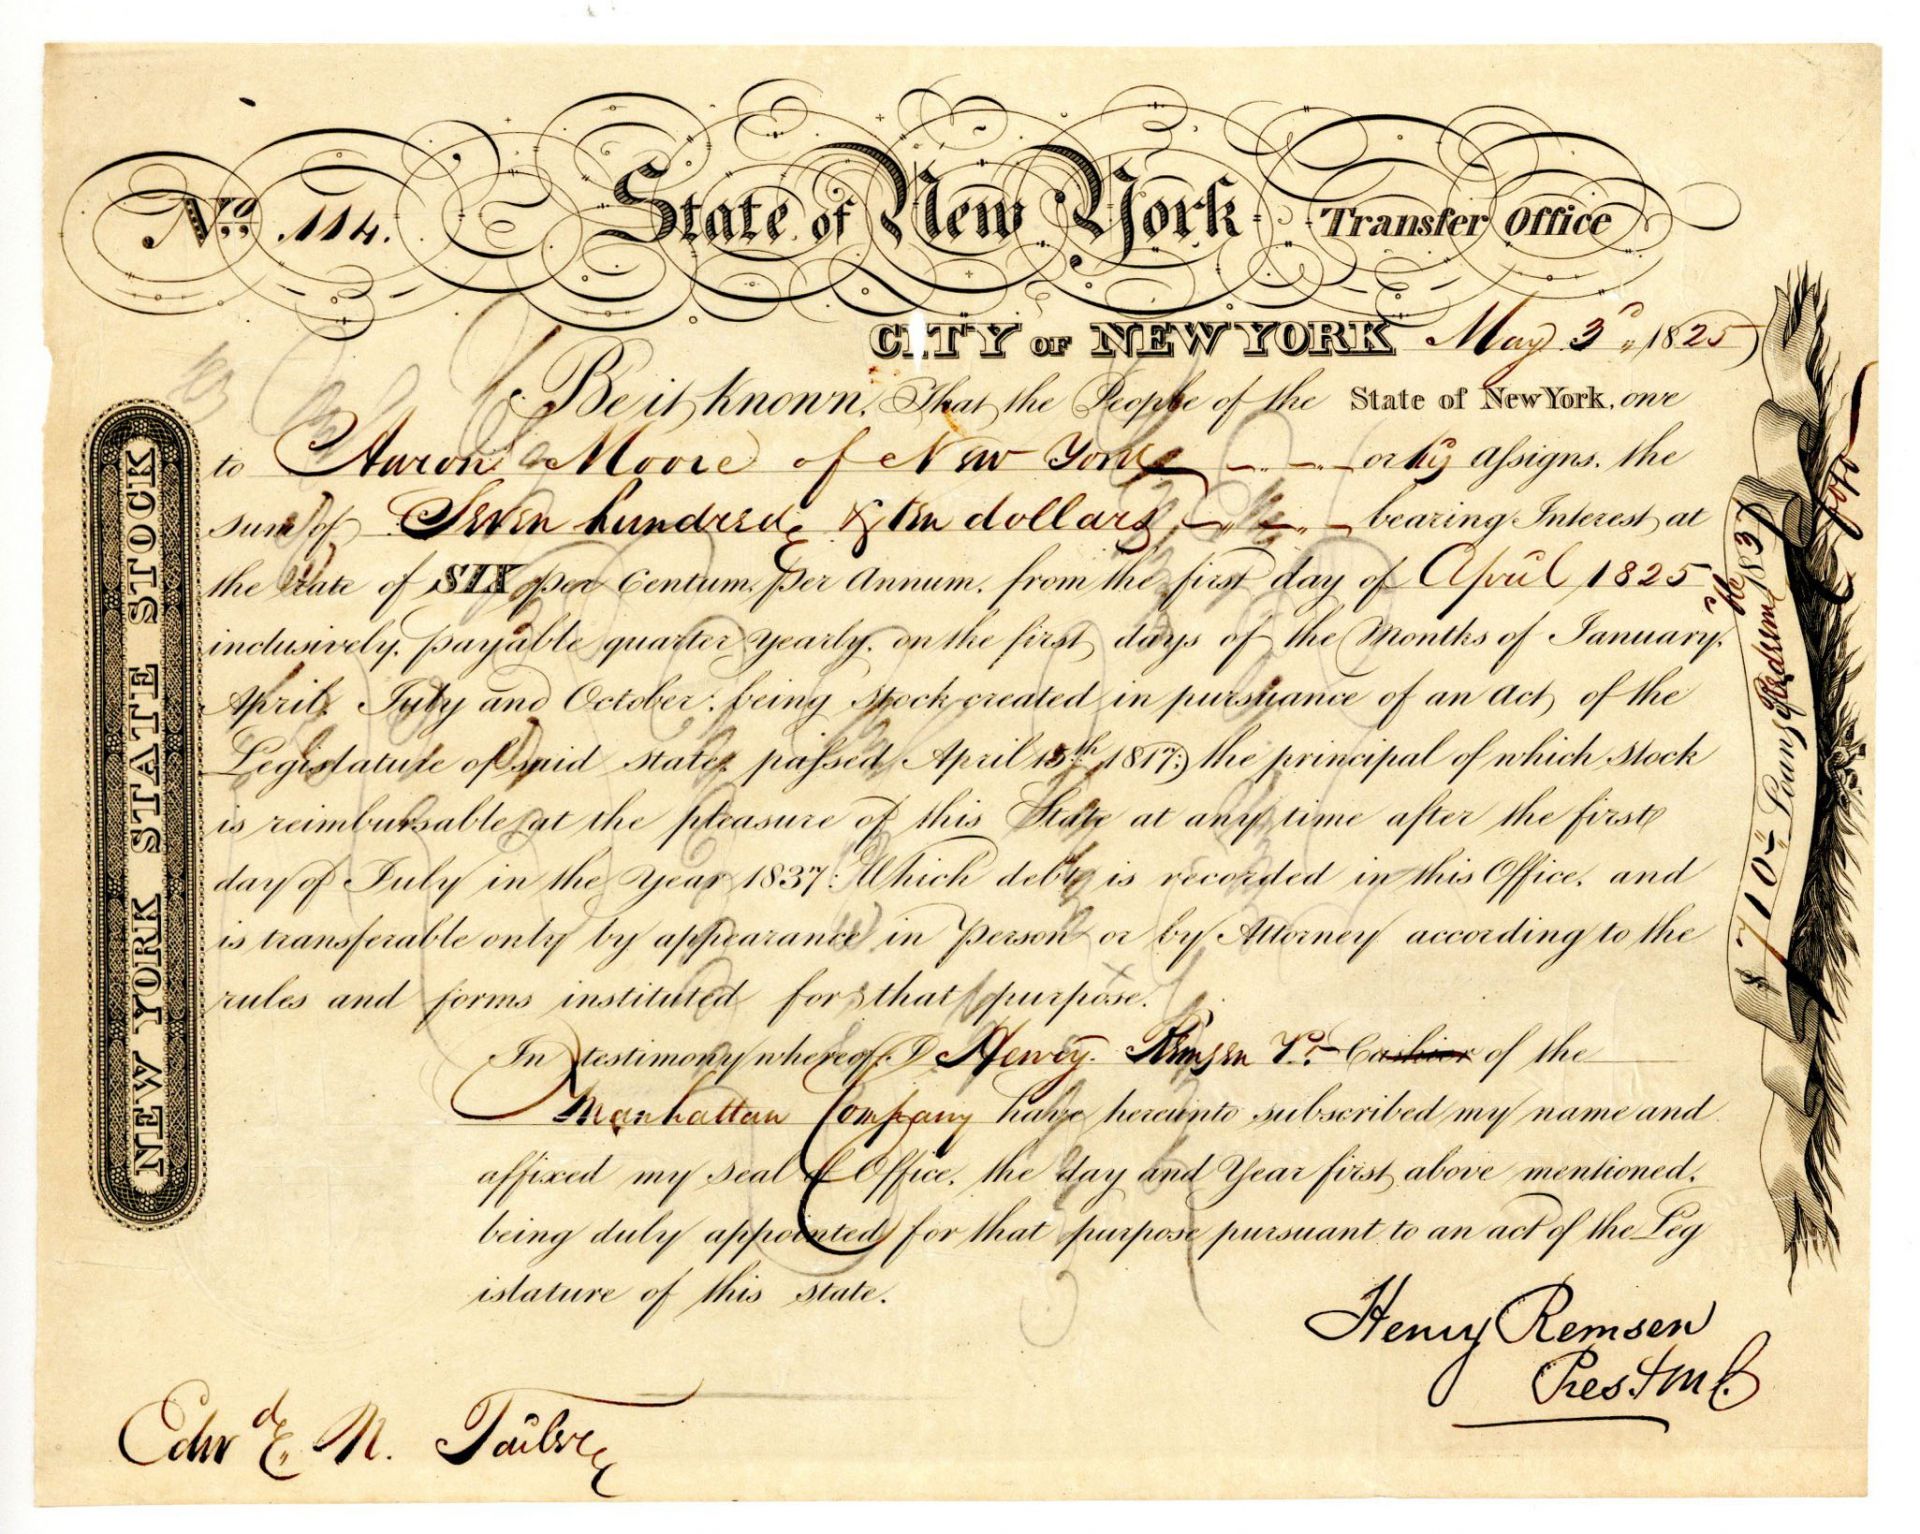 No. 114. State of New York Transfer Office
CITY OF NEW YORK May 3d, 1825
Be it known, That the People of the State of New York, owe
to Aaron Moore of New York or his assigns, the
sum of Seven hundred & ten dollars, bearing Interest at
the rate of SIX per Centum, per Annum, from the first day of April 1825
inclusively, payable quarter yearly, on the first days of the Months of January,
April, July and October: being stock created in pursuance of an Act, of the
Legislature of said state, passed April 15th 1817: the principal of which stock
is reimbursable at the pleasure of this State at any time after the first
day of July in the Year 1837: Which debt is recorded in this Office, and
is transferable only by appearance in person or by Attorney according to the
rules and forms instituted for that purpose.
In testimony whereof, I Henry Remsen Pt. Cashier of the
Manhattan Company have hereunto subscribed my name and
affixed my seal of Office, the day and Year first above mentioned,
being duly appointed for that purpose pursuant to an act of the Leg
islature of this state.
Henry Remsen
Prest M C.
Edwd. N. Tailer
NEW YORK STATE STOCK
$710 Loans Redeemble 1837